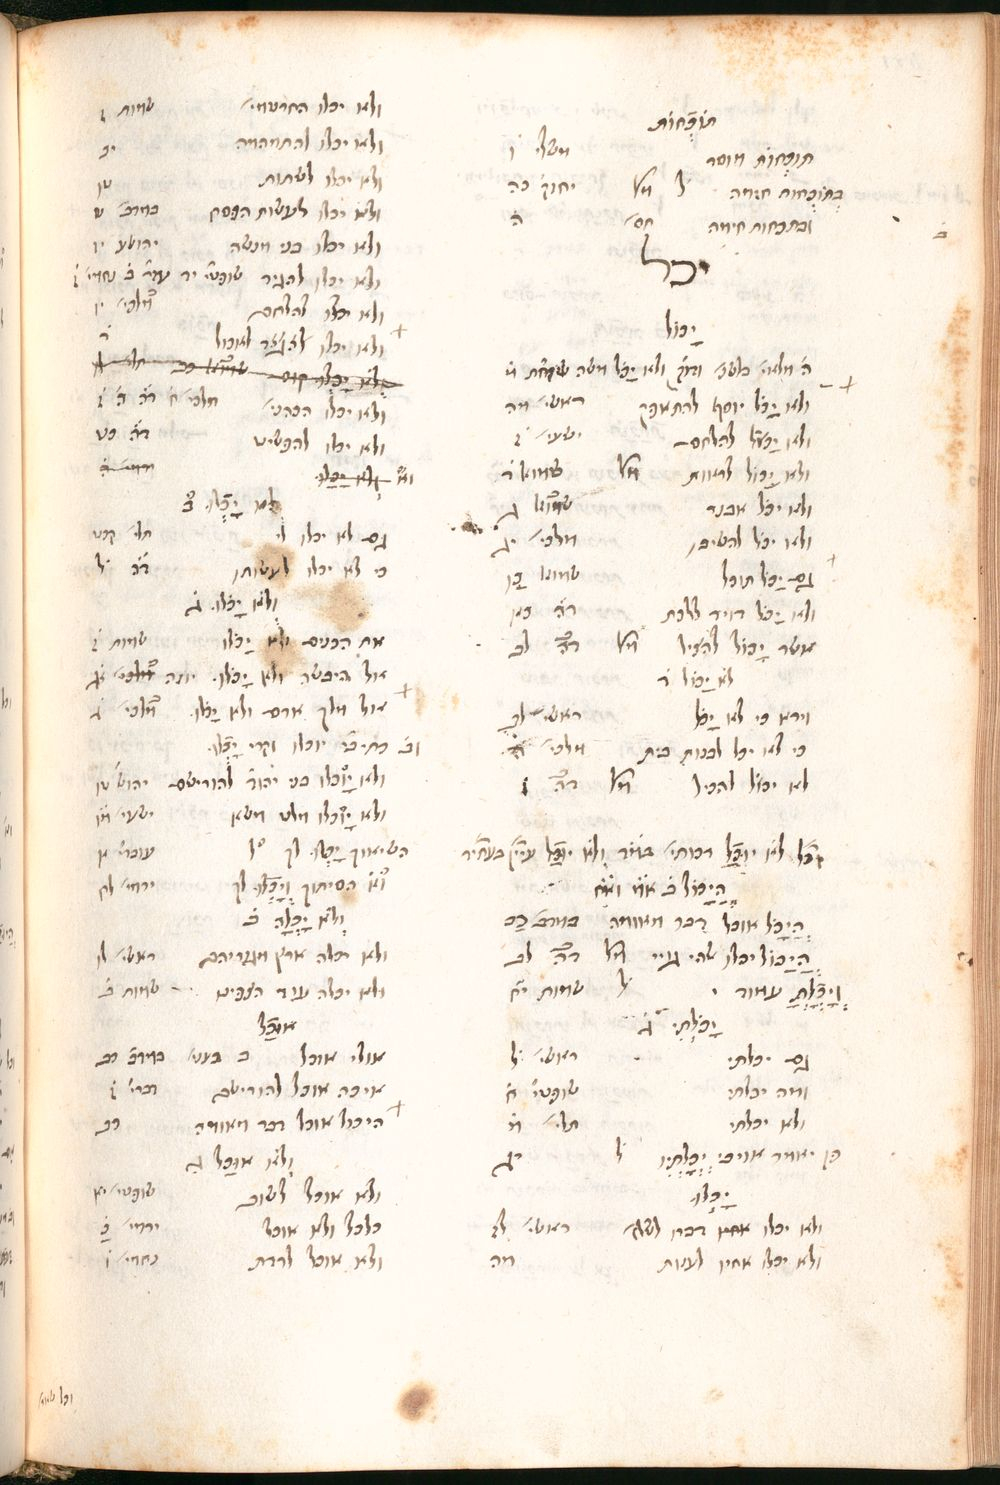 תוכחות
תוכחות מוסר משלי ו
בתוכחות חימה ל מל יחזק כה
ובתכחות חימה חס׳ ה
יכל
יכול
ולא יכל משה שמות מ
ולא יכל יוסף להתאפק ראשי׳ מה
ולא יכל להלחם ישעי׳ ז
ולא יכול לראות מל שמוא׳ ד
ולא יכול אבנר
ולא יכול להשיבן מלכי׳ יג
גם יכל תוכל שמוא׳ כו
ולא יכל דויד ללכת דה כא
אשר יכול להציל מל דה לב
לא יכול ד
וירא כי לא יכל ראשי׳ לב
כי לא יכל לבנות בית מלכי׳ ה
לא יכול להכיל מל דה
היכל אוכל דבר מאומה במדב׳ כב
היכול יכלו מל דה לב
ויכלת עמוד ל שמות יח
יכלתי ג
גם יכלתי ראשי׳ ל
ומה יכלתי שופטי׳ ח
ולא יכלתי תלי׳ מ
פן יאמר אויבי יכלתיו ל יג
יכלו
ולא יכלו דברו לשלו׳ ראשי׳ לז
ולא יכלו אחיו לענות מה
ולא יכלו החרטמי׳ שמות ז
ולא יכלו להתמהמה יב
ולא יכלו לשתות טו
ולא יכלו לעשות הפסח במדב׳ ט
ולא יכלו בני מנשה יהושע יז
ולא יכלו להגיד שופטי׳ יד
ולא יכלו להלחם מלכי׳ יו
ולא יכלו לאכול ד
ולא יכלו קום
ולא יכלו הכהני׳
ולא יכלו להפשיט דה כט
ולא יכלו
לא יכלו ב
גם לא יכלו לי תלי׳ קכט
כי לא יכלו לעשותו דה ל
ולא יכלו ג
את הכנים ולא יכלו שמות ז
אל היבשה ולא יכלו יונה
אל מלך ארם ולא יכלו מלכי׳ ג
וב כתיב׳ יוכלו וקרי יכלו
ולא יוכלו בני יהוד׳ להורישם יהוש׳ טו
ולא יוכלו מלט משא ישעי׳ מו
השיאוך יכלו לך ל עובדי׳ א
הסיתוך ויכלו לך ירמי׳ לח
ולא יכלה ב
ולא יכלה ארץ מגוריהם ראשי׳ לו
ולא יכלה עוד הצפינו שמות ב
אוכל
אולי אוכל ב בעני׳ במדב׳ כב
איכה אוכל להורישם דברי׳ ז
היכול אוכל דבר מאומה כב
ולא אוכל ג
ולא אוכל לשוב שופטי׳ יא
כלכל ולא אוכל ירמי׳ כ
ולא אוכל לרדת נחמי׳ ו